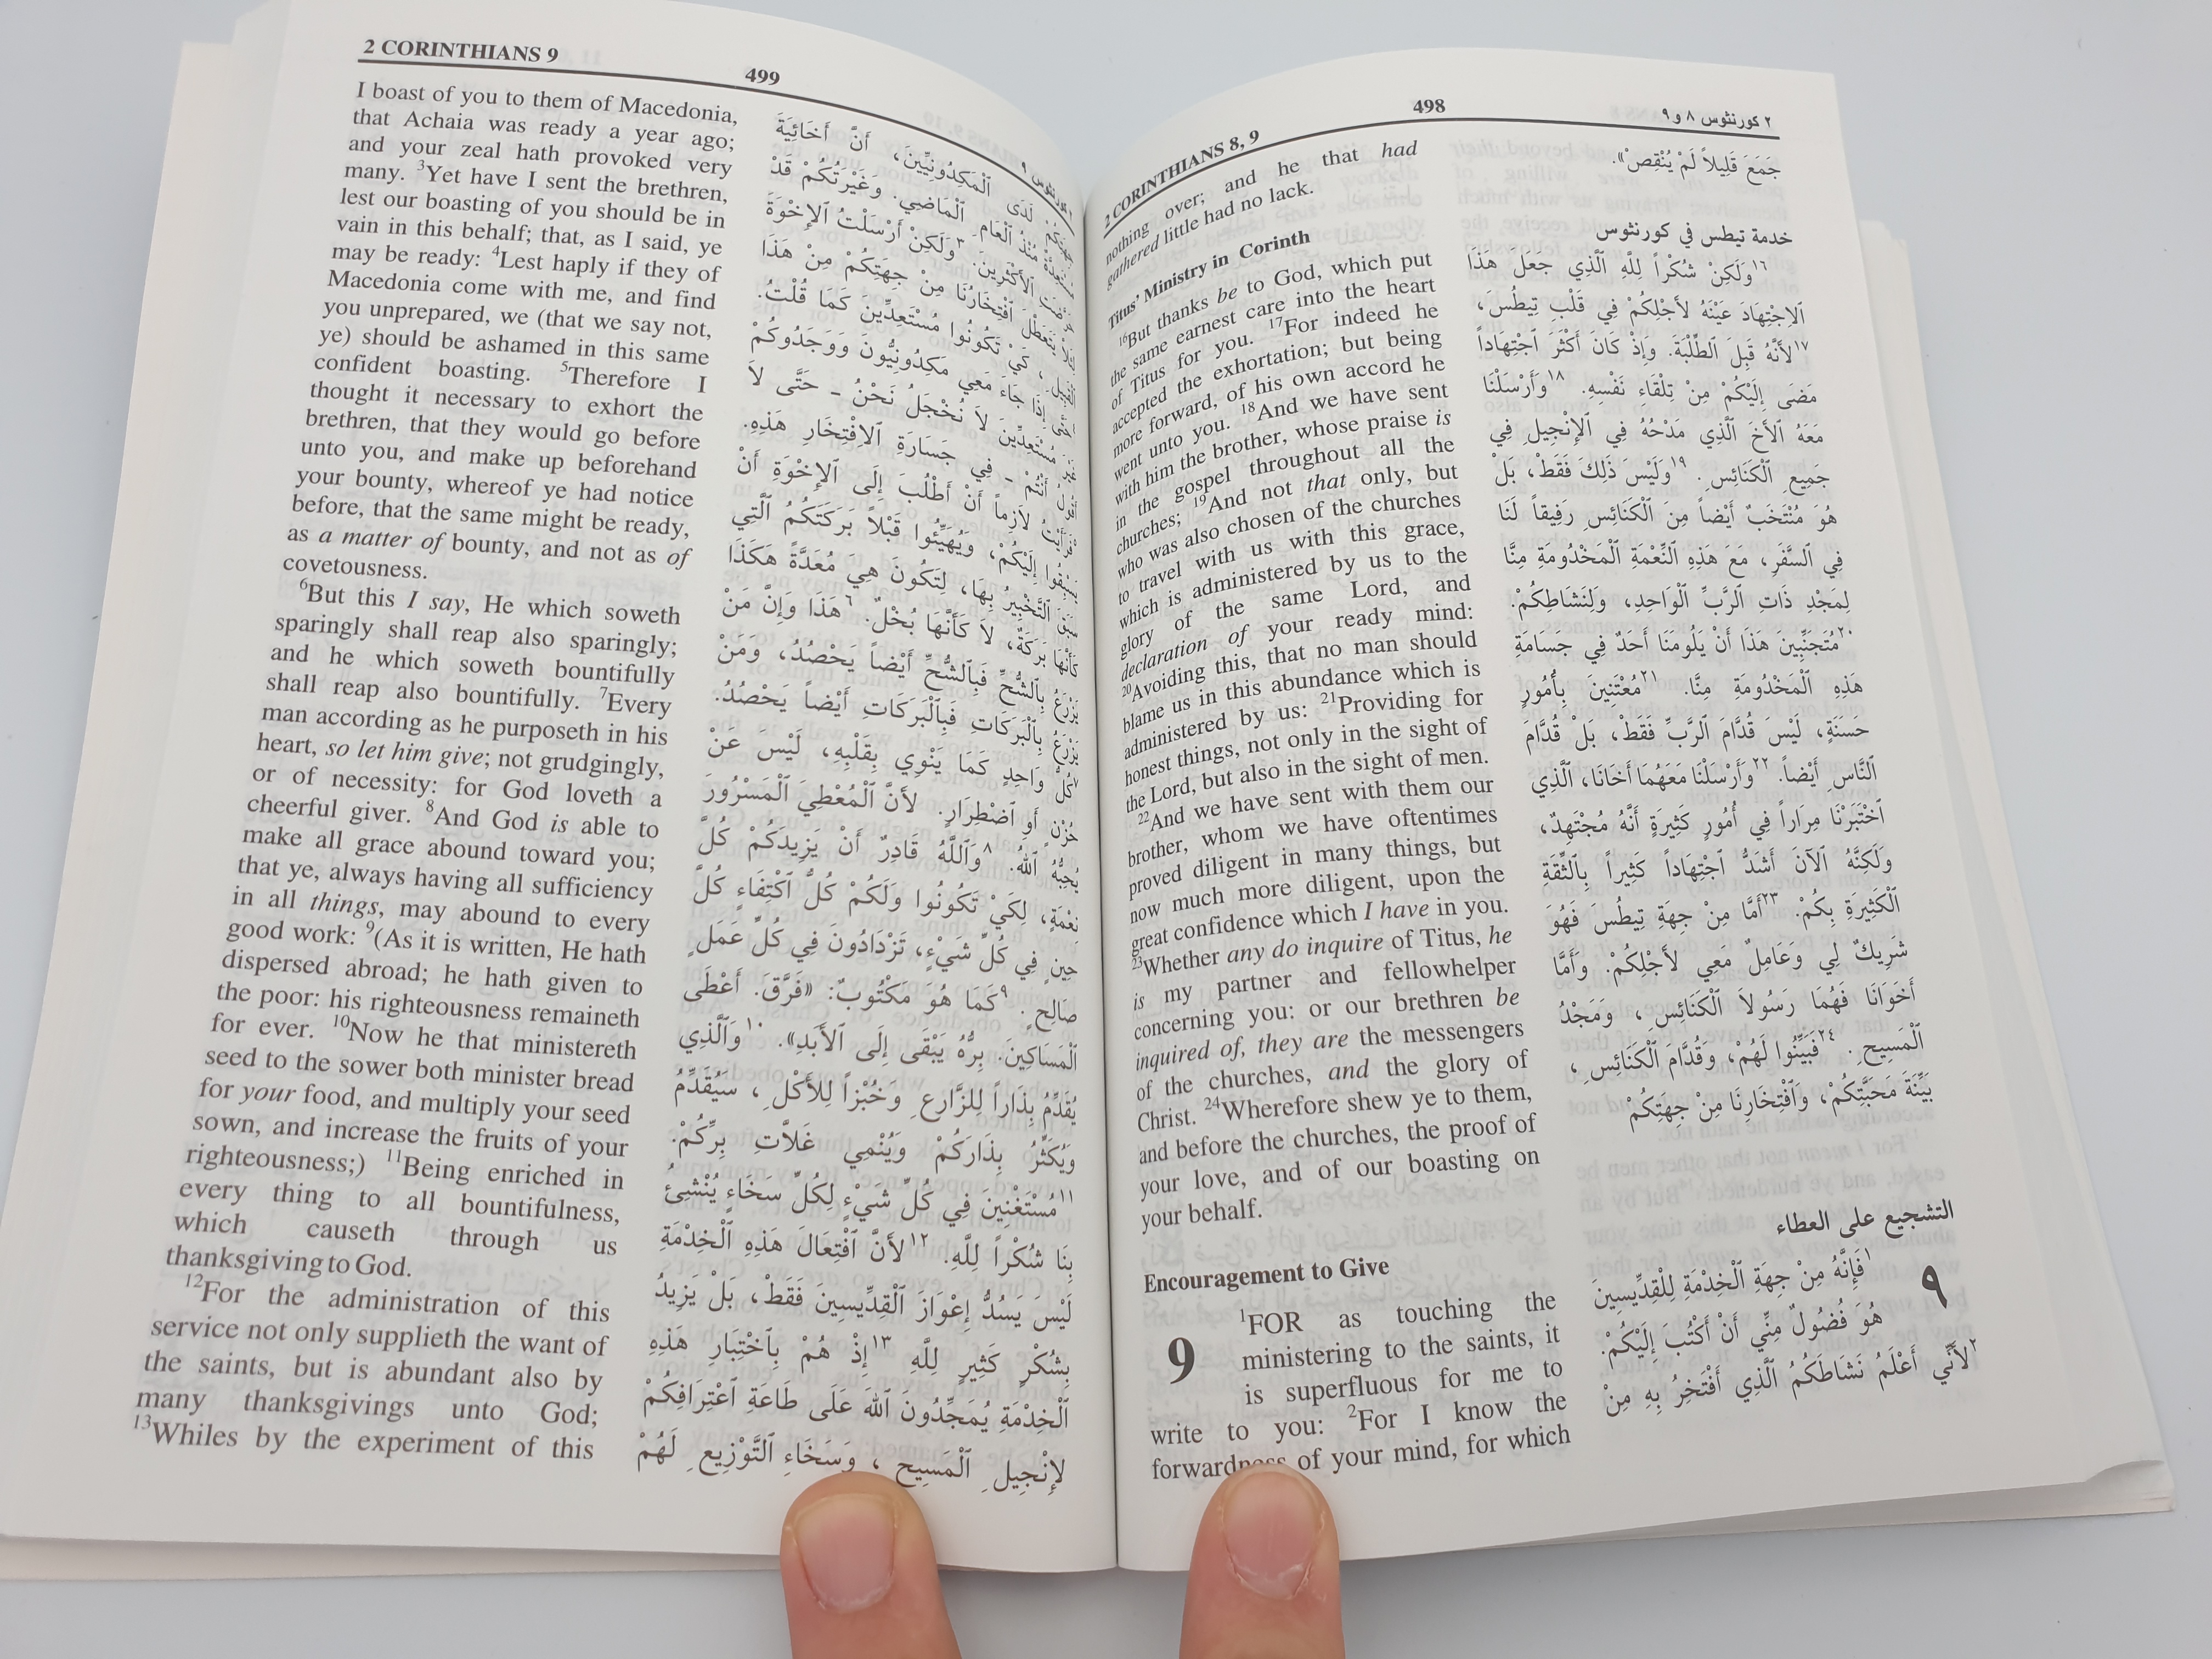 2 CORINTHIANS 8, 9
498
٢ كورنثوس ٨ و٩
nothing over; and he that had
gathered little had no lack.
Titus' Ministry in Corinth
16But thanks be to God, which put
the same earnest care into the heart
of Titus for you. 17For indeed he
accepted the exhortation; but being
more forward, of his own accord he
went unto you. 18And we have sent
with him the brother, whose praise is
in the gospel throughout all the
churches; 19And not that only, but
who was also chosen of the churches
to travel with us with this grace,
which is administered by us to the
glory of the same Lord, and
declaration of your ready mind:
20Avoiding this, that no man should
blame us in this abundance which is
administered by us: 21Providing for
honest things, not only in the sight of
the Lord, but also in the sight of men.
22And we have sent with them our
brother, whom we have oftentimes
proved diligent in many things, but
now much more diligent, upon the
great confidence which I have in you.
23Whether any do inquire of Titus, he
is my partner and fellowhelper
concerning you: or our brethren be
inquired of, they are the messengers
of the churches, and the glory of
Christ. 24Wherefore shew ye to them,
and before the churches, the proof of
your love, and of our boasting on
your behalf.
Encouragement to Give
9
1FOR as touching the
ministering to the saints, it
is superfluous for me to
write to you: 2For I know the
forwardness of your mind, for which
جَمَعَ قَلِيلاً لَمْ يُنْقِصْ».
خدمة تيطس في كورنثوس
١٦وَلَكِنْ شُكْراً لِلَّهِ ٱلَّذِي جَعَلَ هَذَا
ٱلاِجْتِهَادَ عَيْنَهُ لأَجْلِكُمْ فِي قَلْبِ تِيطُسَ،
١٧لأَنَّهُ قَبِلَ ٱلطِّلْبَةَ. وَإِذْ كَانَ أَكْثَرَ ٱجْتِهَاداً
مَضَى إِلَيْكُمْ مِنْ تِلْقَاءِ نَفْسِهِ. ١٨وَأَرْسَلْنَا
مَعَهُ ٱلأَخَ ٱلَّذِي مَدْحُهُ فِي ٱلإِنْجِيلِ فِي
جَمِيعِ ٱلْكَنَائِسِ. ١٩وَلَيْسَ ذَلِكَ فَقَطْ، بَلْ
هُوَ مُنْتَخَبٌ أَيْضاً مِنَ ٱلْكَنَائِسِ رَفِيقاً لَنَا
فِي ٱلسَّفَرِ، مَعَ هَذِهِ ٱلنِّعْمَةِ ٱلْمَخْدُومَةِ مِنَّا
لِمَجْدِ ذَاتِ ٱلرَّبِّ ٱلْوَاحِدِ، وَلِنَشَاطِكُمْ.
٢٠مُتَجَنِّبِينَ هَذَا أَنْ يَلُومَنَا أَحَدٌ فِي جَسَامَةِ
هَذِهِ ٱلْمَخْدُومَةِ مِنَّا. ٢١مُعْتَنِينَ بِأُمُورٍ
حَسَنَةٍ، لَيْسَ قُدَّامَ ٱلرَّبِّ فَقَطْ، بَلْ قُدَّامَ
ٱلنَّاسِ أَيْضاً. ٢٢وَأَرْسَلْنَا مَعَهُمَا أَخَانَا، ٱلَّذِي
ٱخْتَبَرْنَا مِرَاراً فِي أُمُورٍ كَثِيرَةٍ أَنَّهُ مُجْتَهِدٌ،
وَلَكِنَّهُ ٱلآنَ أَشَدُّ ٱجْتِهَاداً كَثِيراً بِٱلثِّقَةِ
ٱلْكَثِيرَةِ بِكُمْ. ٢٣أَمَّا مِنْ جِهَةِ تِيطُسَ فَهُوَ
شَرِيكٌ لِي وَعَامِلٌ مَعِي لأَجْلِكُمْ. وَأَمَّا
أَخَوَانَا فَهُمَا رَسُولاَ ٱلْكَنَائِسِ، وَمَجْدُ
ٱلْمَسِيحِ. ٢٤فَبَيِّنُوا لَهُمْ، وَقُدَّامَ ٱلْكَنَائِسِ،
بَيِّنَةَ مَحَبَّتِكُمْ، وَٱفْتِخَارِنَا مِنْ جِهَتِكُمْ
التشجيع على العطاء
٩
١فَإِنَّهُ مِنْ جِهَةِ ٱلْخِدْمَةِ لِلْقِدِّيسِينَ
هُوَ فُضُولٌ مِنِّي أَنْ أَكْتُبَ إِلَيْكُمْ.
٢لأَنِّي أَعْلَمُ نَشَاطَكُمُ ٱلَّذِي أَفْتَخِرُ بِهِ مِنْ
2 CORINTHIANS 9
499
كورنثوس ٩
I boast of you to them of Macedonia,
that Achaia was ready a year ago;
and your zeal hath provoked very
many. 3Yet have I sent the brethren,
lest our boasting of you should be in
vain in this behalf; that, as I said, ye
may be ready: 4Lest haply if they of
Macedonia come with me, and find
you unprepared, we (that we say not,
ye) should be ashamed in this same
confident boasting. 5Therefore I
thought it necessary to exhort the
brethren, that they would go before
unto you, and make up beforehand
your bounty, whereof ye had notice
before, that the same might be ready,
as a matter of bounty, and not as of
covetousness.
6But this I say, He which soweth
sparingly shall reap also sparingly;
and he which soweth bountifully
shall reap also bountifully. 7Every
man according as he purposeth in his
heart, so let him give; not grudgingly,
or of necessity: for God loveth a
cheerful giver. 8And God is able to
make all grace abound toward you;
that ye, always having all sufficiency
in all things, may abound to every
good work: 9(As it is written, He hath
dispersed abroad; he hath given to
the poor: his righteousness remaineth
for ever. 10Now he that ministereth
seed to the sower both minister bread
for your food, and multiply your seed
sown, and increase the fruits of your
righteousness;) 11Being enriched in
every thing to all bountifulness,
which causeth through us
thanksgiving to God.
12For the administration of this
service not only supplieth the want of
the saints, but is abundant also by
many thanksgivings unto God;
13Whiles by the experiment of this
لَدَى ٱلْمَكِدُونِيِّينَ، أَنَّ أَخَائِيَةَ
مُنْذُ ٱلْعَامِ ٱلْمَاضِي. وَغَيْرَتُكُمْ قَدْ
ٱلأَكْثَرِينَ. ٣وَلَكِنْ أَرْسَلْتُ ٱلإِخْوَةَ
يَتَعَطَّلَ ٱفْتِخَارُنَا مِنْ جِهَتِكُمْ مِنْ هَذَا
كَيْ تَكُونُوا مُسْتَعِدِّينَ كَمَا قُلْتُ.
إِذَا جَاءَ مَعِي مَكِدُونِيُّونَ وَوَجَدُوكُمْ
مُسْتَعِدِّينَ لاَ نُخْجَلُ نَحْنُ - حَتَّى لاَ
أَنْتُمْ - فِي جَسَارَةِ ٱلاِفْتِخَارِ هَذِهِ.
لاَزِماً أَنْ أَطْلُبَ إِلَى ٱلإِخْوَةِ أَنْ
إِلَيْكُمْ، وَيُهَيِّئُوا قَبْلاً بَرَكَتَكُمُ ٱلَّتِي
ٱلتَّخْبِيرُ بِهَا، لِتَكُونَ هِيَ مُعَدَّةً هَكَذَا
كَأَنَّهَا بَرَكَةٌ، لاَ كَأَنَّهَا بُخْلٌ. ٦هَذَا وَإِنَّ مَنْ
يَزْرَعُ بِٱلشُّحِّ فَبِٱلشُّحِّ أَيْضاً يَحْصُدُ، وَمَنْ
يَزْرَعُ بِٱلْبَرَكَاتِ فَبِٱلْبَرَكَاتِ أَيْضاً يَحْصُدُ.
٧كُلُّ وَاحِدٍ كَمَا يَنْوِي بِقَلْبِهِ، لَيْسَ عَنْ
حُزْنٍ أَوِ ٱضْطِرَارٍ. لأَنَّ ٱلْمُعْطِيَ ٱلْمَسْرُورَ
يُحِبُّهُ ٱللهُ. ٨وَٱللَّهُ قَادِرٌ أَنْ يَزِيدَكُمْ كُلَّ
نِعْمَةٍ، لِكَيْ تَكُونُوا وَلَكُمْ كُلُّ ٱكْتِفَاءٍ كُلَّ
حِينٍ فِي كُلِّ شَيْءٍ، تَزْدَادُونَ فِي كُلِّ عَمَلٍ
صَالِحٍ. ٩كَمَا هُوَ مَكْتُوبٌ: «فَرَّقَ. أَعْطَى
ٱلْمَسَاكِينَ. بِرُّهُ يَبْقَى إِلَى ٱلأَبَدِ». ١٠وَٱلَّذِي
يُقَدِّمُ بِذَاراً لِلزَّارِعِ وَخُبْزاً لِلأَكْلِ، سَيُقَدِّمُ
وَيُكَثِّرُ بِذَارَكُمْ وَيُنْمِي غَلاَّتِ بِرِّكُمْ.
١١مُسْتَغْنِينَ فِي كُلِّ شَيْءٍ لِكُلِّ سَخَاءٍ يُنْشِئُ
بِنَا شُكْراً لِلَّهِ. ١٢لأَنَّ ٱفْتِعَالَ هَذِهِ ٱلْخِدْمَةِ
لَيْسَ يَسُدُّ إِعْوَازَ ٱلْقِدِّيسِينَ فَقَطْ، بَلْ يَزِيدُ
بِشُكْرٍ كَثِيرٍ لِلَّهِ ١٣إِذْ هُمْ بِٱخْتِبَارِ هَذِهِ
ٱلْخِدْمَةِ يُمَجِّدُونَ ٱللهَ عَلَى طَاعَةِ ٱعْتِرَافِكُمْ
لإِنْجِيلِ ٱلْمَسِيحِ، وَسَخَاءِ ٱلتَّوْزِيعِ لَهُمْ